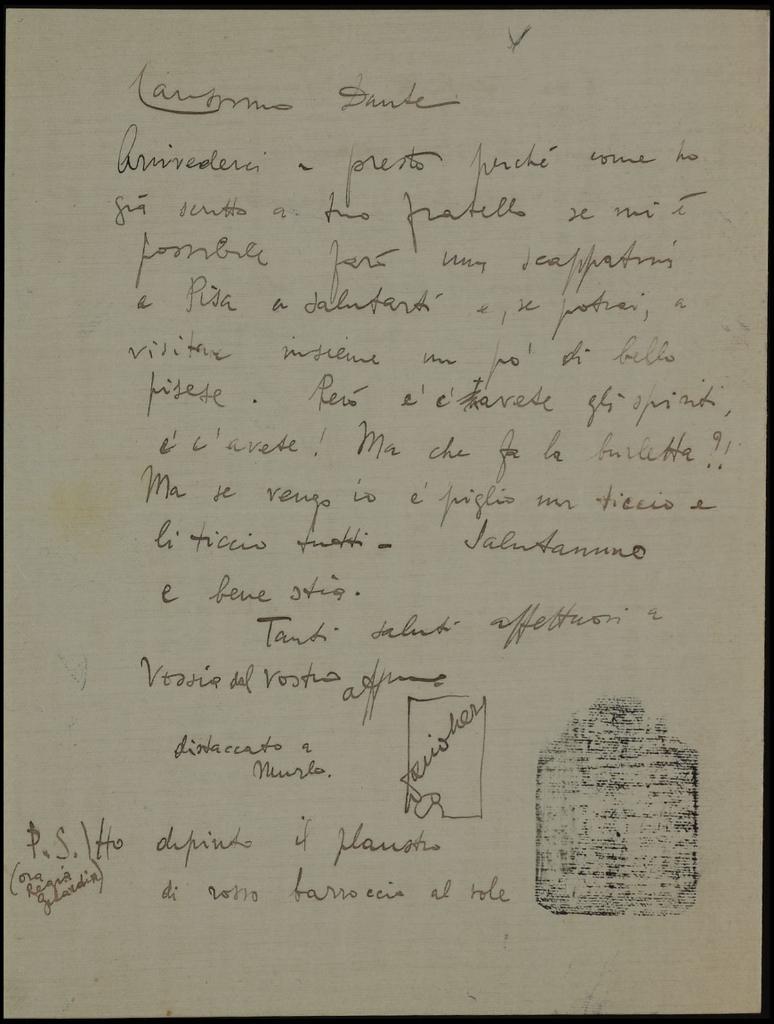 Carissimo Dante
Arrivederci a presto perché come ho
già scritto a tuo fratello se mi è
possibile farò una scappatina
a Pisa a salutarti e, se potrai, a
visitare insieme un po' di bello
pisese. Però e' c'avete gli spiriti,
e' c'avete! Ma che fa la burletta?!
Ma se vengo io e' piglio un ticcio e
li ticcio tutti - Salutammo
e bene stia.
Tanti saluti affettuosi a
Vossia dal vostro affmo
distaccato a
Murlo.
P.S. Ho dipinto il plaustro
(ora Regia
di rosso barroccio al sole